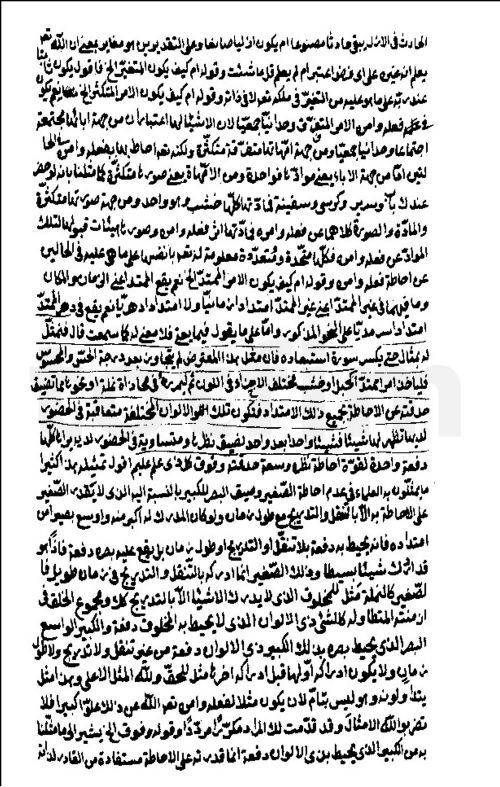 الحادث في الازل يبقى حادثا مصنوعا ام يكون ازليا صانعا وعلى التقديرين هو مغاير بمعنى ان الله تعالى
يعلم انه عين على اي فرض اعتبرام لم يعلم قل ما شئت وقوله ام كيف يكون المتغير الخ فاقول يكون ثابتا
عند ربه على ما هو عليه من التغير في ملكه تعالى لا في ذاته وقوله ام كيف يكون الامر المتكثر الخ
فعله وامره الامر المتفرق وحدانيا جمعيا لان الاشياء لها اعتباران من جهة ابائها مجتمعة
اجتماعا وحدانيا جمعيا ومن جهة امهاتها متفرقة متكثرة ولكنه تعالى احاط بها بفعله وامره في الحا
لتين اما من جهة الاباء يعني موادها فواحدة ومن الامهات يعني صورها متكثرة كما مثلنا بانه لو حضر
عندك باب وسرير وكرسي وسفينة فمادتها كلها خشب وهو واحد ومن جهة صورتها متكثرة
والمادة والصورة كلاهما عن فعله وامره فمادتها اثر فعله وامره وصورها هيئات قبولها لتلك
المواد عن فعله وامره فكل متحدة ومتعددة معلومة له تعالى بانفسها على ما هي عليه في الحالين
عن احاطة فعله وامره وقوله ام كيف يكون الامر الممتد الخ نعم يقع الممتد اعني الزمان والمكان
وما فيهما في غير الممتد اعني غير الممتد امتدادا زمانيا ولا امتدادا دهريا نعم يقع في دهر الممتد
امتدادا سرمديا على النحو المذكور واما على ما يقول فيما يعنى فلا معنى له كما سمعت قال فتمثل
له بمثال حتى يكسر سورة استبعاده فان مثل هذا المعترض لم يتجاوز بعد درجة الحس والمحسوس
فلياخذ امرا ممتدا كحبل او خشب مختلف الاجزاء في اللون ثم ليمرره في محاذاة نملة او نحوها مما تضيق
حدقته عن الاحاطة بجميع ذلك الامتداد فتكون تلك الالوان المختلفة متعاقبة في الحضور
لديها تظهر لها شيئا فشيئا واحدا بعد واحد لضيق نظرها ومتساوية في الحضور لديه يراها كلها
دفعة واحدة لقوة احاطة نظره وسعة حدقته وفوق كل ذي علم عليم اقول تمثيله بهذا كثيرا
ما يمثلون به العلماء في عدم احاطة الصغير وضيق البصر للكبير بالنسبة اليه الذي لا يقدر الصغير
على الاحاطة به الا بالتنقل والتدريج مع طول زمان ولو كان المدرك له اكبر منه واوسع بصيرا من
امتداده فانه يحيط به دفعة بلا تنقل او التدريج او طول زمان بل يقع عليه بصره دفعة فاذا هو
قد ادرك شيئا بسيطا وذلك الصغير انما ادركه بالتنقل والتدريج في زمان طويل فا
لصغير كالنملة مثل للمخلوق الذي لا يدرك الاشياء الا بالتدريج كل ومجموع الخلق في
ازمنته المتطاولة كالشيء ذي الالوان الذي لا يحيط به المخلوق دفعة والكبير الواسع
البصر الذي يحيط بصره بذلك الكبير ذي الالوان دفعة من غير تنقل ولا تدريج ولا طول
زمان ولا يكون ادراكه اولها قبل ادراكه اخرها مثل للحق ولله المثل الاعلى وبهذا مثل
يتداولونه وهو ليس بتام لان يكون مثلا لفعله وامره تعالى الله عن ذلك علوا كبيرا فلا
تضربوا لله الامثال وقد قدمت لك المراد مكررا مرددا وقوله وفوق الخ يشير الى ما مثلنا
به من الكبير الذي يحيط بذي الالوان دفعة انما قدرته على الاحاطة مستفادة من القادر لذاته